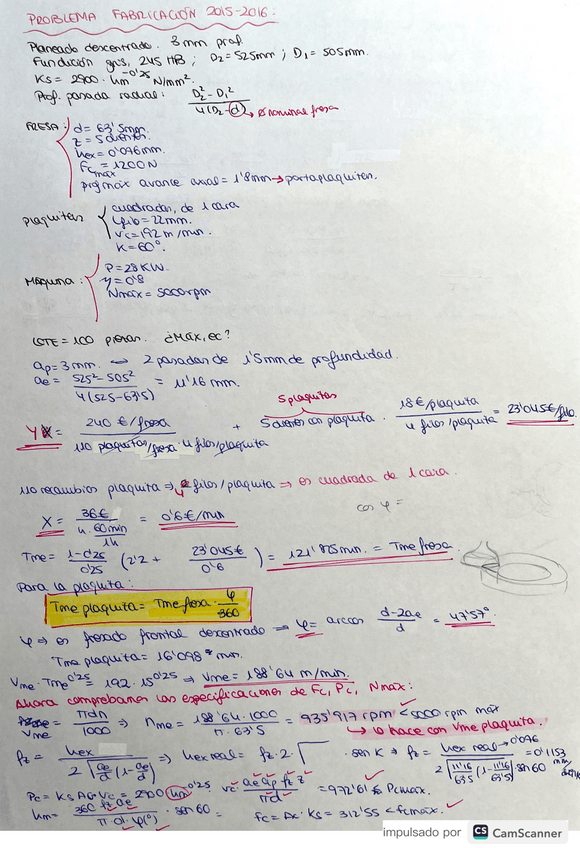 PROBLEMA FABRICACIÓN 2015-2016.
Planeado descentrado. 3 mm prof.
Fundición gris, 245 HB ; D₂ = 525mm ; D₁ = 505mm.
Ks = 2900 · hm^-0'25 N/mm².
Prof. pasada radial: (D₂² - D₁²) / 4(D₂ - d) → Ø nominal fresa
FRESA:
d = 63'5mm.
z = 5 dientes.
hex = 0'096mm.
Fc max = 1200 N
prof máx avance axial = 1'8mm → portaplaquitas.
plaquitas
cuadradas, de 1 cara
= 22mm.
Vc = 192 m/min.
K = 60°.
Máquina:
P = 28 KW.
η = 0'8
Nmax = 5000 rpm
LOTE = 100 piezas. ¿Máx, ec?
ap = 3 mm. → 2 pasadas de 1'5mm de profundidad.
ae = (525² - 505²) / 4(525 - 63'5) = 11'16 mm.
5 plaquitas
Y = 240 €/fresa / 110 plaquitas/fresa · 4 filos/plaquita + 5 dientes con plaquita · 18 €/plaquita / 4 filos/plaquita = 23'045 €/filo
110 recambios plaquita ⇒ 4 filos/plaquita ⇒ es cuadrada de 1 cara.
cos φ =
X = 36 € / h · 60min / 1h = 0'6 €/min
Tme = (1 - 0'25) / 0'25 (2'2 + 23'045 € / 0'6) = 121'825 min. = Tme fresa.
Para la plaquita:
Tme plaquita = Tme fresa · φ / 360
φ ⇒ es fresado frontal descentrado ⇒ φ = arccos (d - 2ae) / d = 47'57°
Tme plaquita = 16'098 min.
Vme · Tme^0'25 = 192 · 15^0'25 ⇒ Vme = 188'64 m/min.
Ahora comprobamos las especificaciones de Fc, Pc, Nmax:
Vme = πdn / 1000 ⇒ nme = 188'64 · 1000 / π · 63'5 = 935'917 rpm < 5000 rpm max
→ lo hace con Vme plaquita.
fz = hex / 2√(ae/d (1 - ae/d)) ⇒ hex real = fz · 2 · √ · sen K → fz = hex real → 0'096 / 2√(11'16/63'5 (1 - 11'16/63'5)) sen 60 = 0'1153 mm/diente
Pc = Ks Ac · Vc = 2900 hm^-0'25 Vc · ae ap fz z / πd = 972'61 ≤ Pcmax.
hm = 360 fz ae / π · d · φ(°) · sen 60 = fc = Ac · Ks = 312'55 < fcmax.
impulsado por CS CamScanner